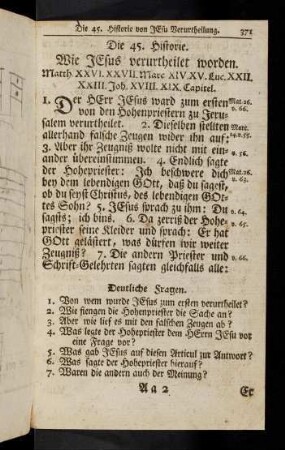 Die 45. Historie von JEsu Verurtheilung. 371
Die 45. Historie.
Wie JEsus verurtheilet worden.
Matth. XXVI. XXVII. Marc XIV. XV. Luc. XXII.
XXIII. Joh. XVIII. XIX. Capitel.
1. Der HErr JEsus ward zum ersten
von den Hohenpriestern zu Jeru-
salem verurtheilet. 2. Dieselben stelleten
allerhand falsche Zeugen wider ihn auf:
3. Aber ihr Zeugniß wolte nicht mit ein-
ander übereinstimmen. 4. Endlich sagte
der Hohepriester: Jch beschwere dich
bey dem lebendigen GOtt, daß du sagest,
ob du seyst Christus, des lebendigen GOt-
tes Sohn? 5. JEsus sprach zu ihm: Du
sagsts; ich bins. 6. Da zerriß der Hohe-
priester seine Kleider und sprach: Er hat
GOtt gelästert, was dürfen wir weiter
Zeugniß? 7. Die andern Priester und
Schrift-Gelehrten sagten gleichfalls alle:
Mat. 26.
v. 66.
Marc.
v. 56.
Mat. 26.
v. 63.
v. 64.
v. 65.
v. 66.
Deutliche Fragen.
1. Von wem wurde JEsus zum ersten verurtheilet?
2. Wie fiengen die Hohenpriester die Sache an?
3. Aber wie lief es mit den falschen Zeugen ab?
4. Was legte der Hohepriester dem HErrn JEsu vor
eine Frage vor?
5. Was gab JEsus auf diesen Articul zur Antwort?
6. Was sagte der Hohepriester hierauf?
7. Waren die andern auch der Meinung?
A a 2 Er